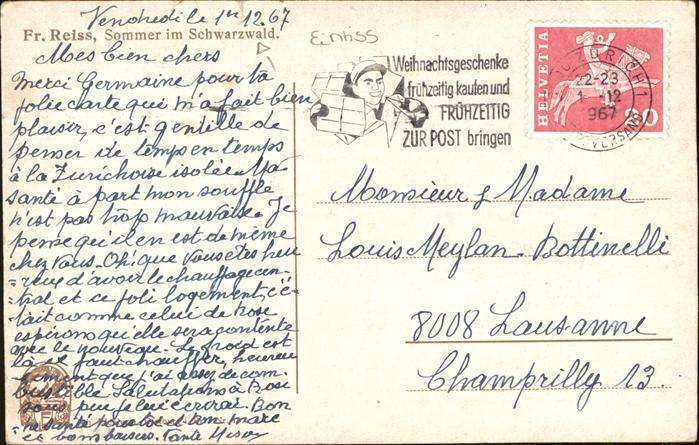 Vendredi le 1er 12.67
Fr. Reiss, Sommer im Schwarzwald.
Mes bien chers
Merci Germaine pour ta
jolie carte qui m'a fait bien
plaisir, c'est gentille de
penser de temps en temps
à la Zurichoise isolée. Ma
santé à part mon souffle
n'est pas trop mauvaise. Je
pense qu'il en est de même
chez vous. Oh! que vous êtes heu
reuse d'avoir le chauffage cen-
tral et ce joli logement, c'é-
tait comme celui de Rose
espérons qu'elle sera contente
avec le nouveau. Le froid est
là il faut chauffer, heureu
sement que j'ai assez de com
bustible. Salutations à Rose
sous peu je lui écrirai. Bon
ne santé pour toi et ton mari
et bons baisers. Tante
Weihnachtsgeschenke
frühzeitig kaufen und
FRÜHZEITIG
ZUR POST bringen
HELVETIA
22-23
1 12
967
VERSAND
Monsieur & Madame
Louis Meylan-Bottinelli
8008 Lausanne
Champrilly 13.